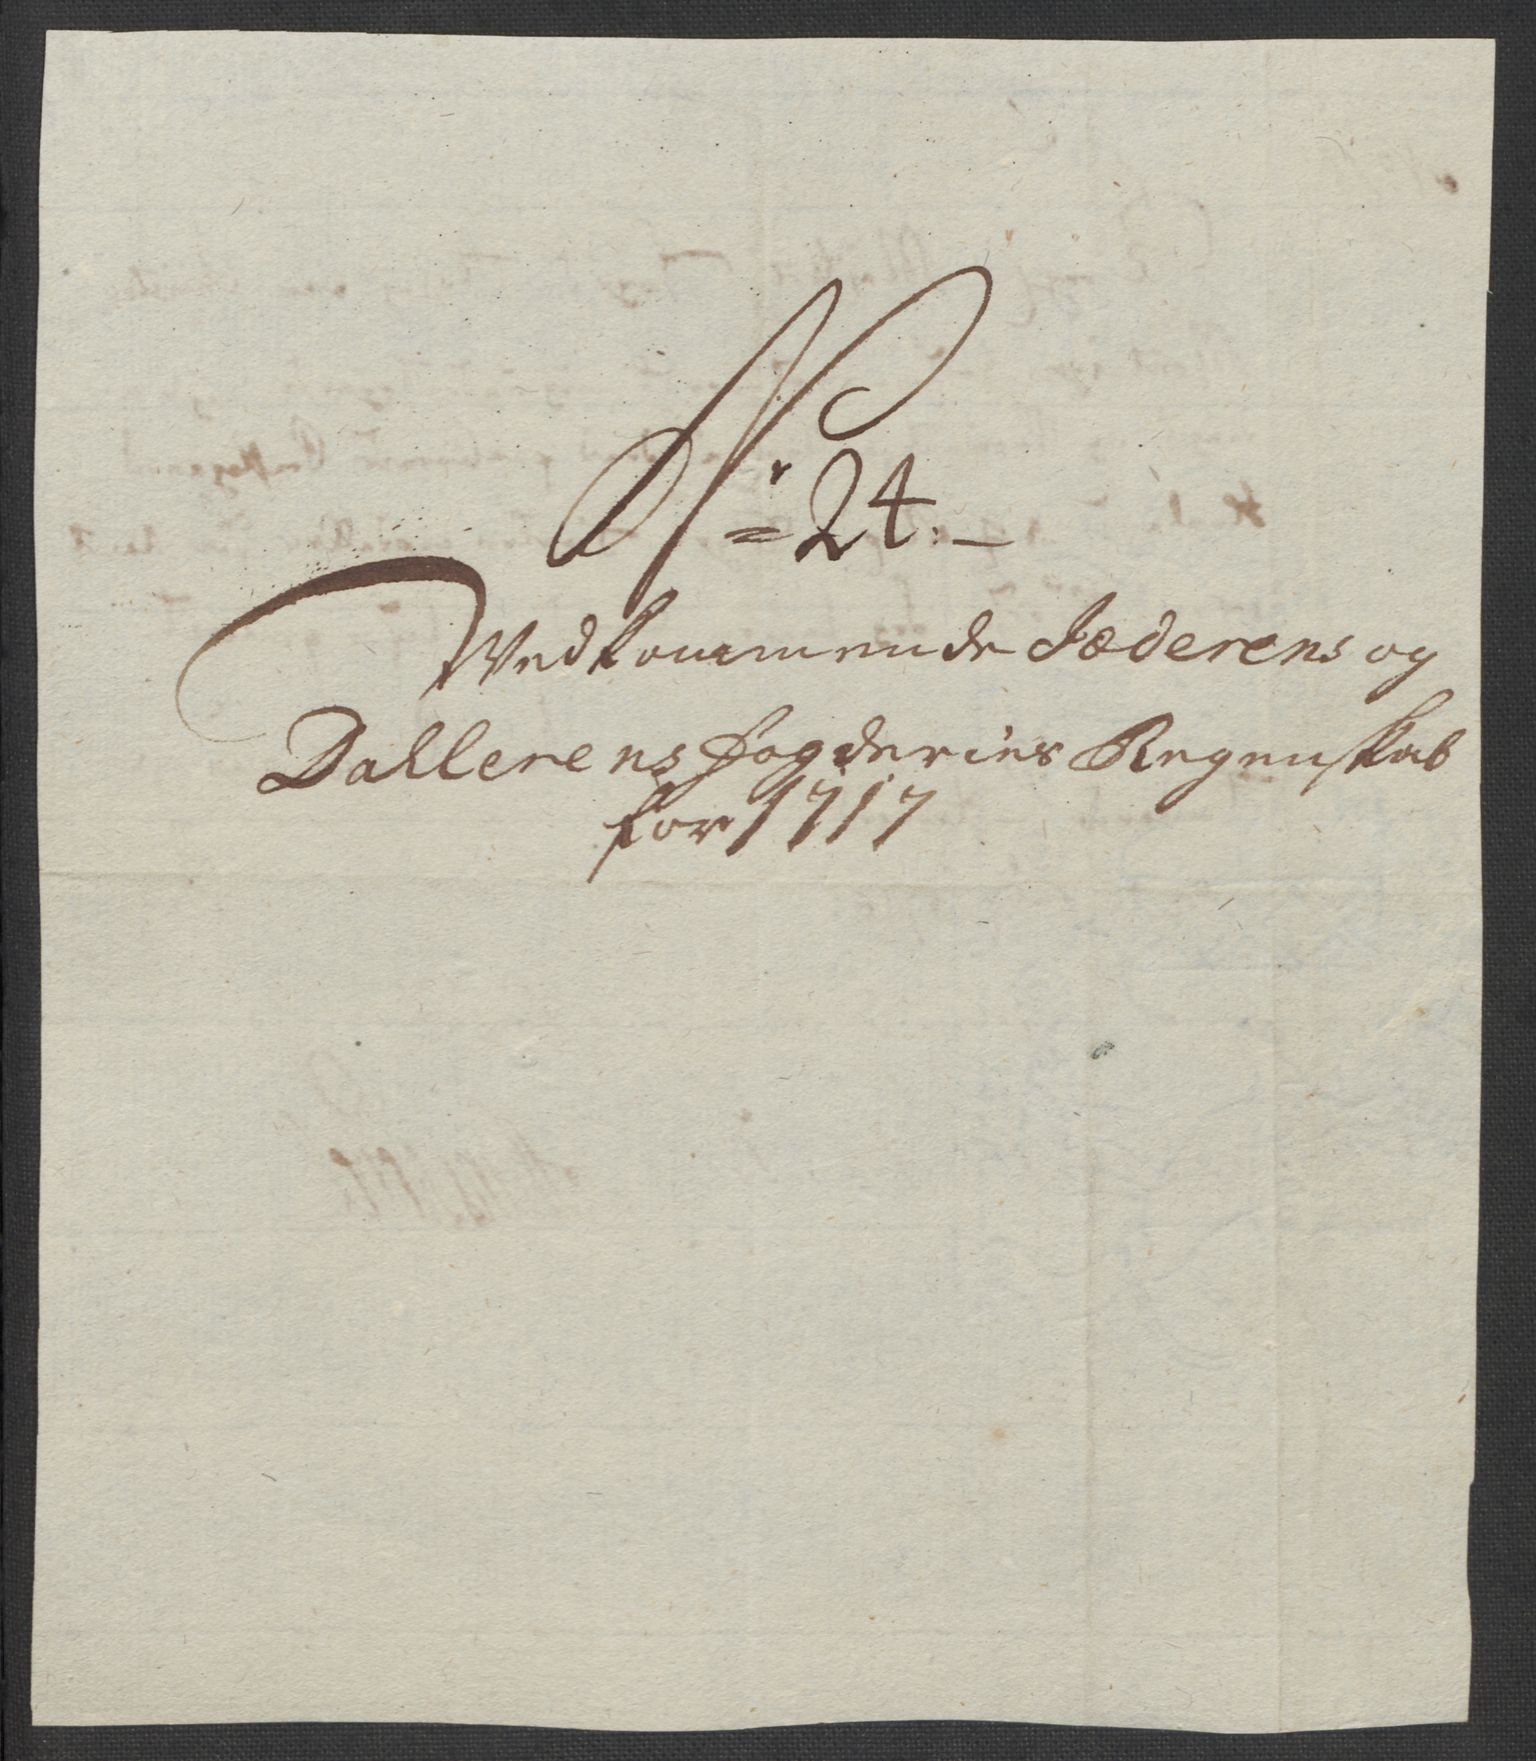 Nr 24.-
Vedkommende Jæderens og
Dallerens Fogderies Regenskab
for 1717